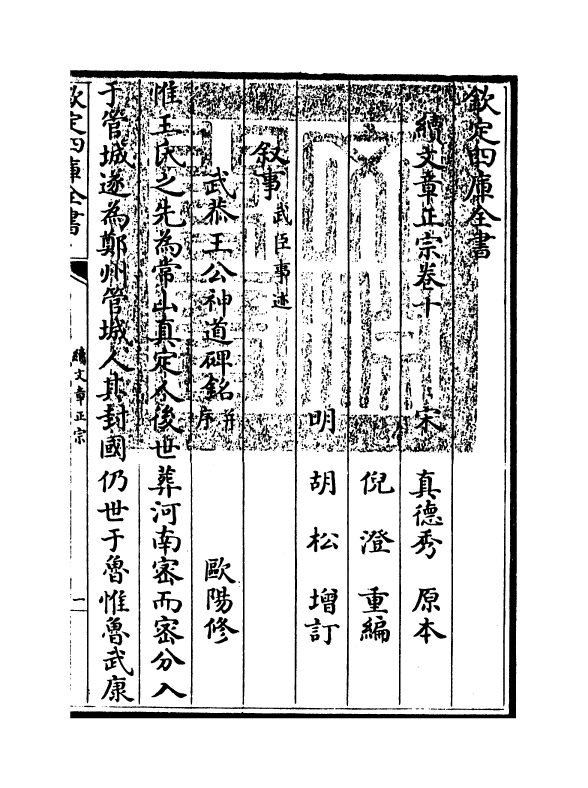 欽定四庫全書
續文章正宗卷十
宋 真德秀 原本
倪澄 重編
明 胡松 增訂
叙事武臣事述
武恭王公神道碑銘并序 歐陽修
惟王氏之先為常山真定人後世葬河南密而密分入
于管城遂為鄭州管城人其封國仍世于魯惟魯武康
欽定四庫全書
續文章正宗
一